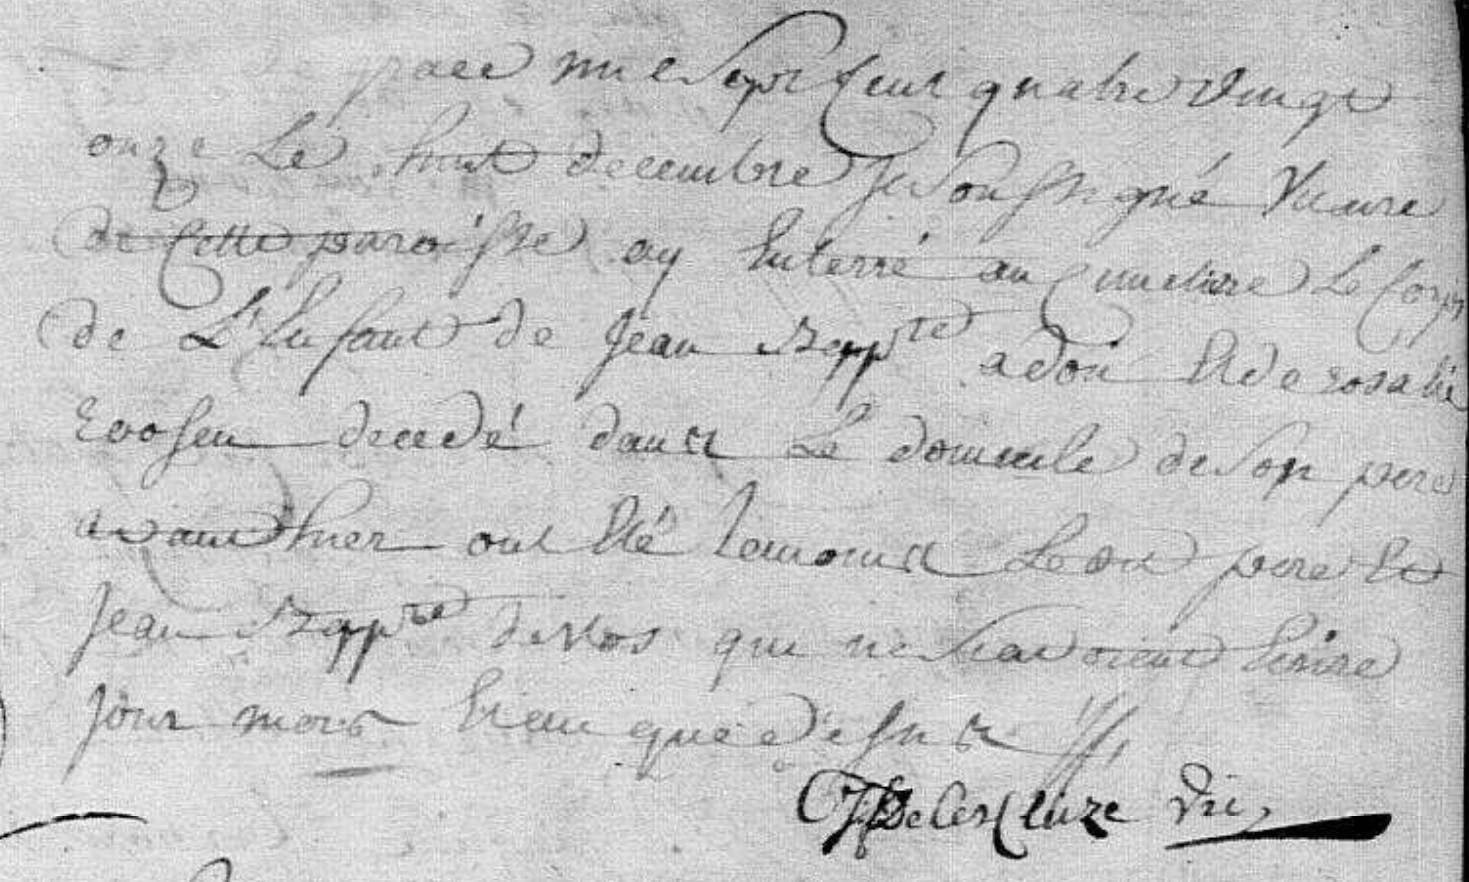 de grace mil sept cent quatre vingt
onze le huit decembre je soussigné vicaire
de cette paroisse ay enterré au cimetiere le corps
de l'enfant de jean bapte adou et de rosalie
roosen decedé dans le domicile de son pere
avant hier ont eté temoins ledit pere et
jean bapte devos qui ne scavoient ecrire
jour mois et an que dessus
Delescluze vic